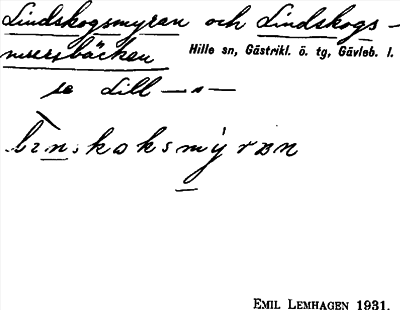 Lindskogsmyren och Lindskogs-
myrsbäcken Hille sn, Gästrikl. ö. tg, Gävleb. l.
se Lill —„—
EMIL LEMHAGEN 1931.